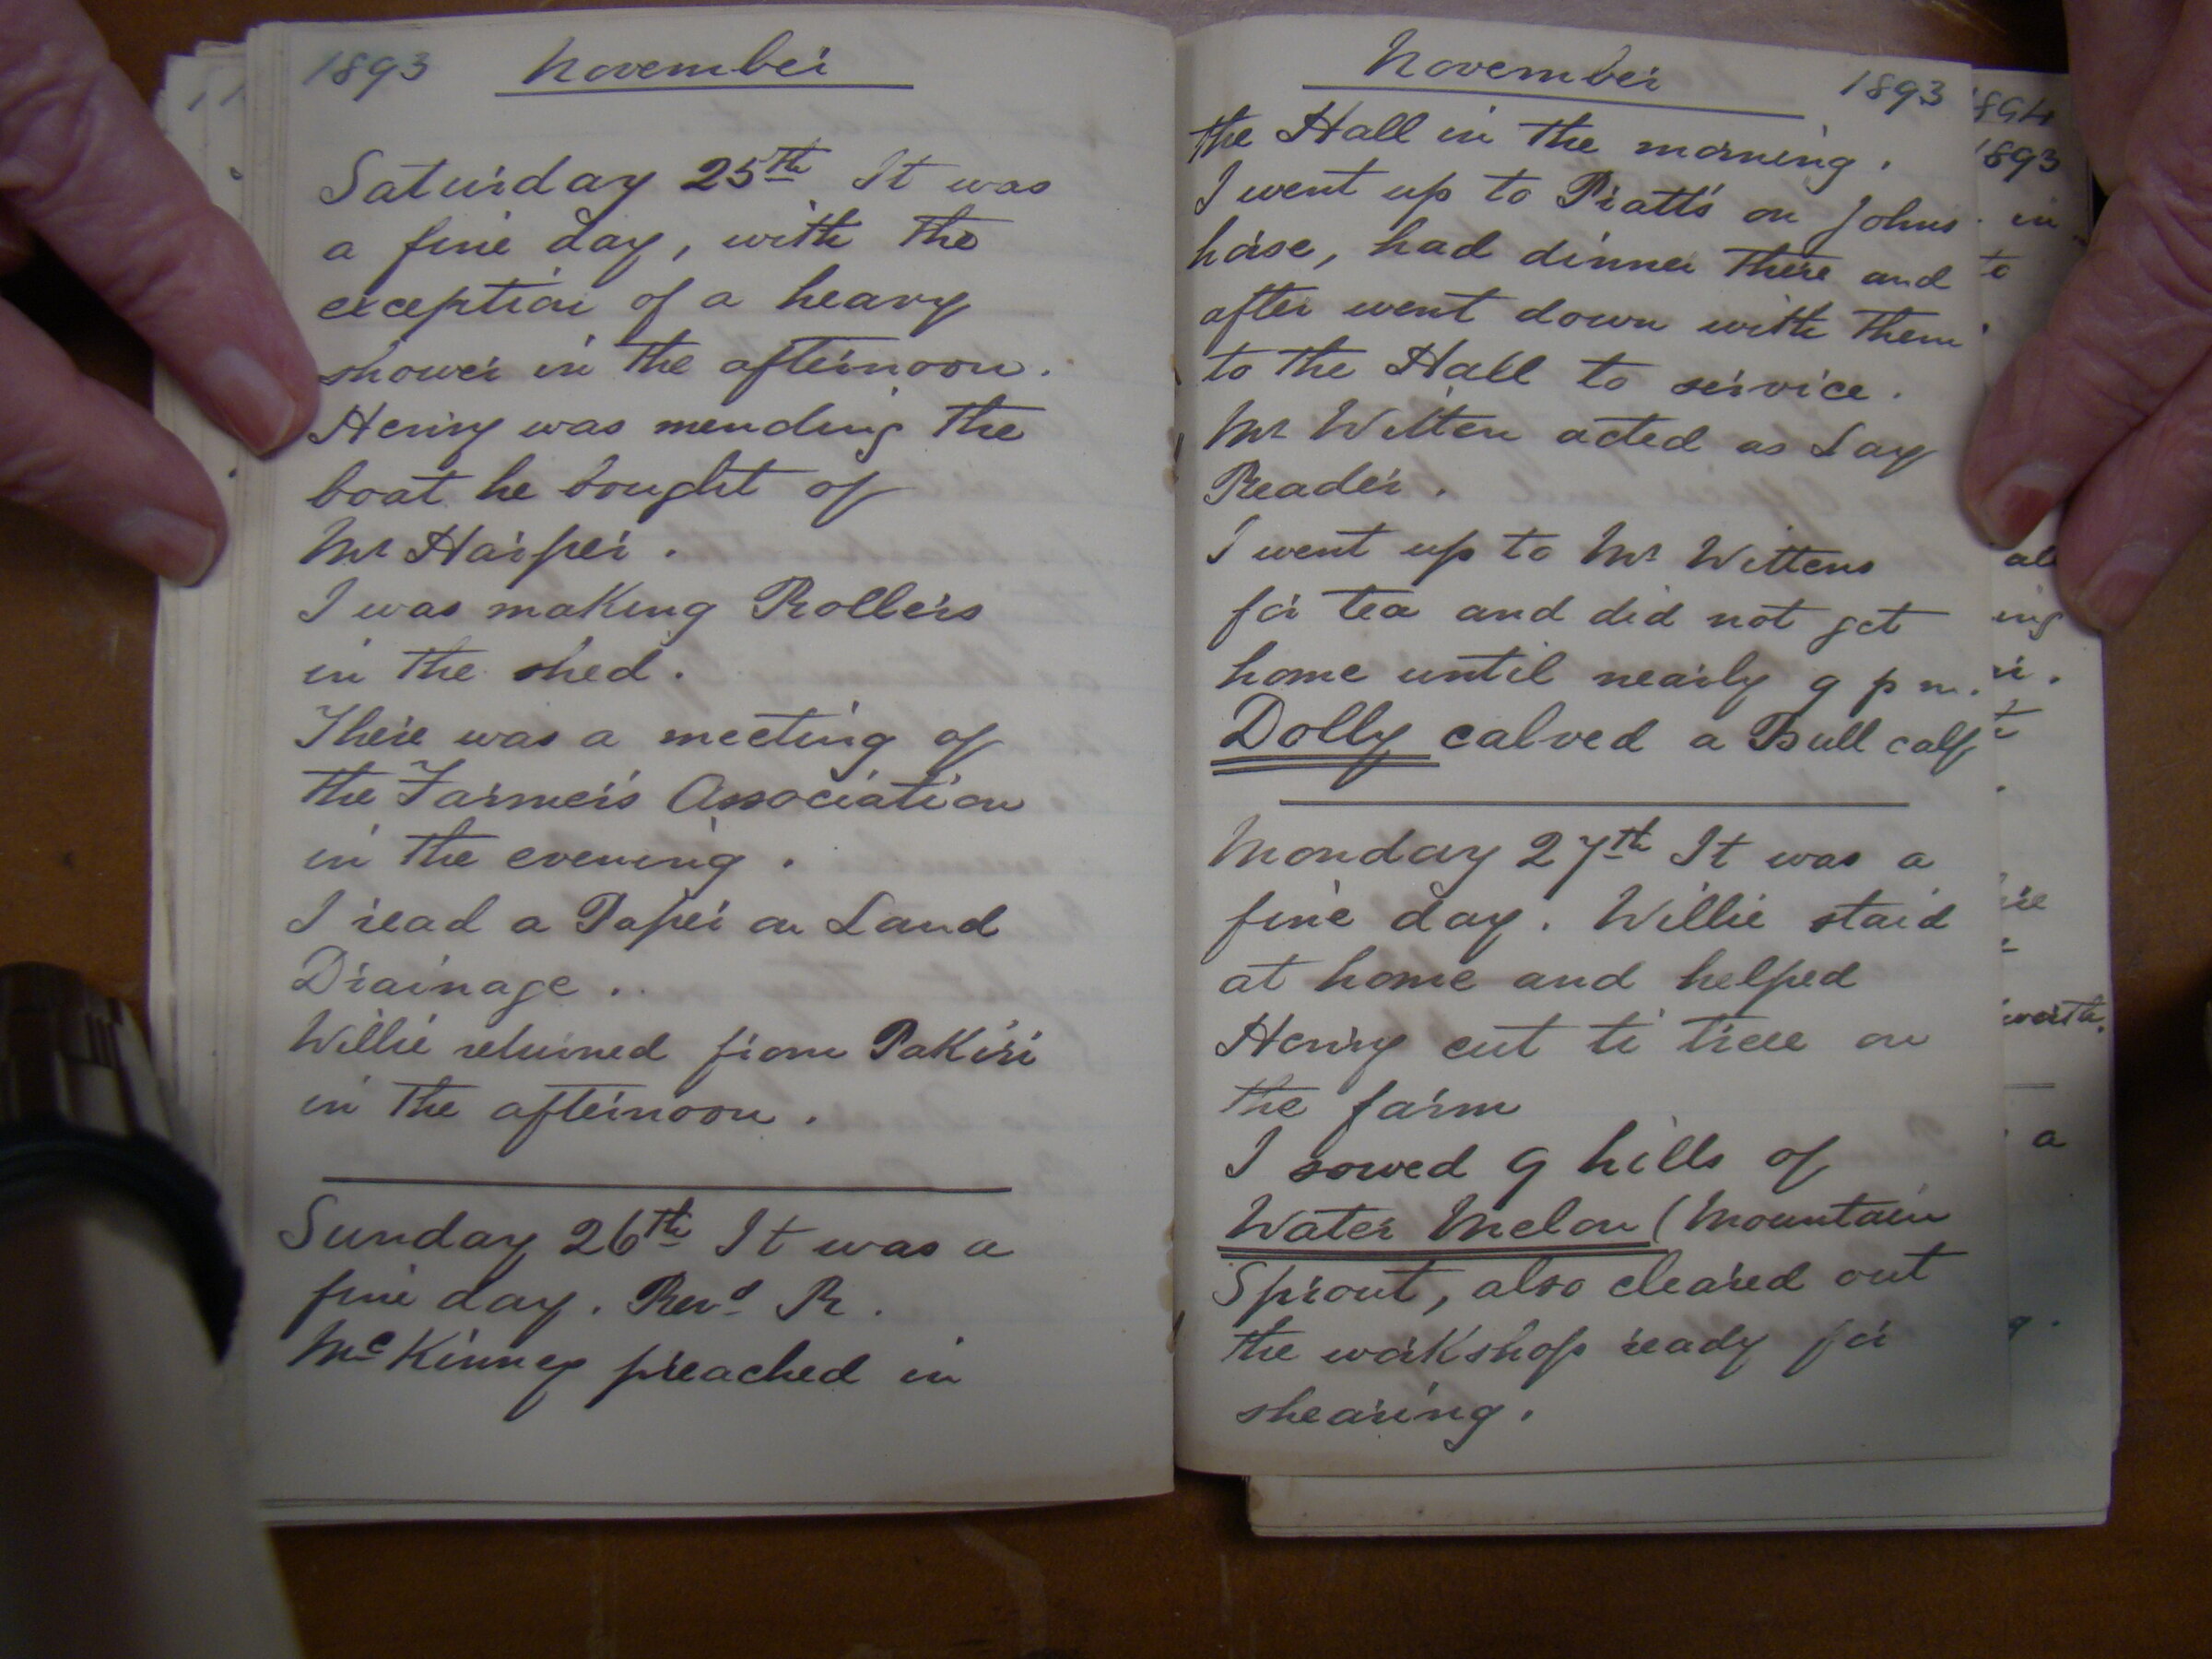 1893 November
Saturday 25th It was
a fine day, with the
exception of a heavy
shower in the afternoon.
Henry was mending the
boat he bought of
Mr Harper.
I was making Rollers
in the shed.
There was a meeting of
the Farmers Association
in the evening.
I read a Paper on Land
Drainage..
Willie returned from Pakiri
in the afternoon.
Sunday 26th It was a
fine day. Revd R.
McKinney preached in
November 1893
the Hall in the morning.
I went up to Pratt's on Johns
horse, had dinner there and
after went down with them
to the Hall to service.
Mr Witten acted as Lay
Reader.
I went up to Mr Wittens
for tea and did not get
home until nearly 9 pm.
Dolly calved a Bull calf
Monday 27th It was a
fine day. Willie staid
at home and helped
Henry cut ti tree on
the farm
I sowed 9 hills of
Water Melon (Mountain
Sprout, also cleared out
the workshop ready for
shearing.
1894
1893
in
to
ing
worth.
a